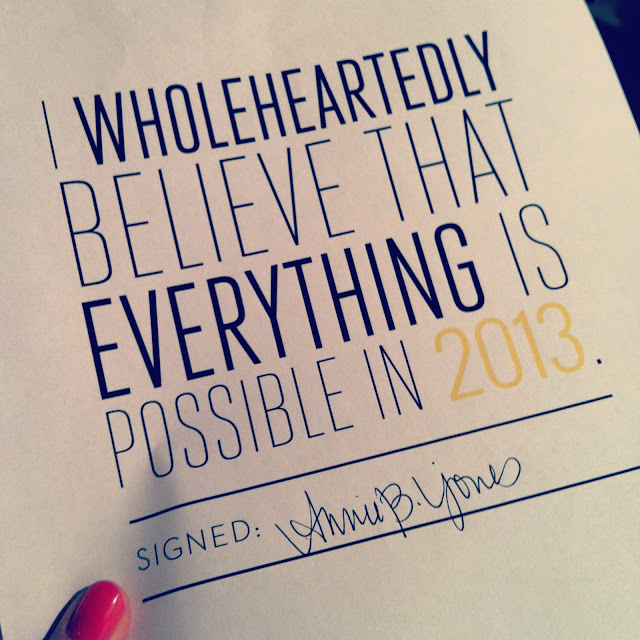 I WHOLEHEARTEDLY
BELIEVE THAT
EVERYTHING IS
POSSIBLE IN 2013.
SIGNED: Annie B. Jones